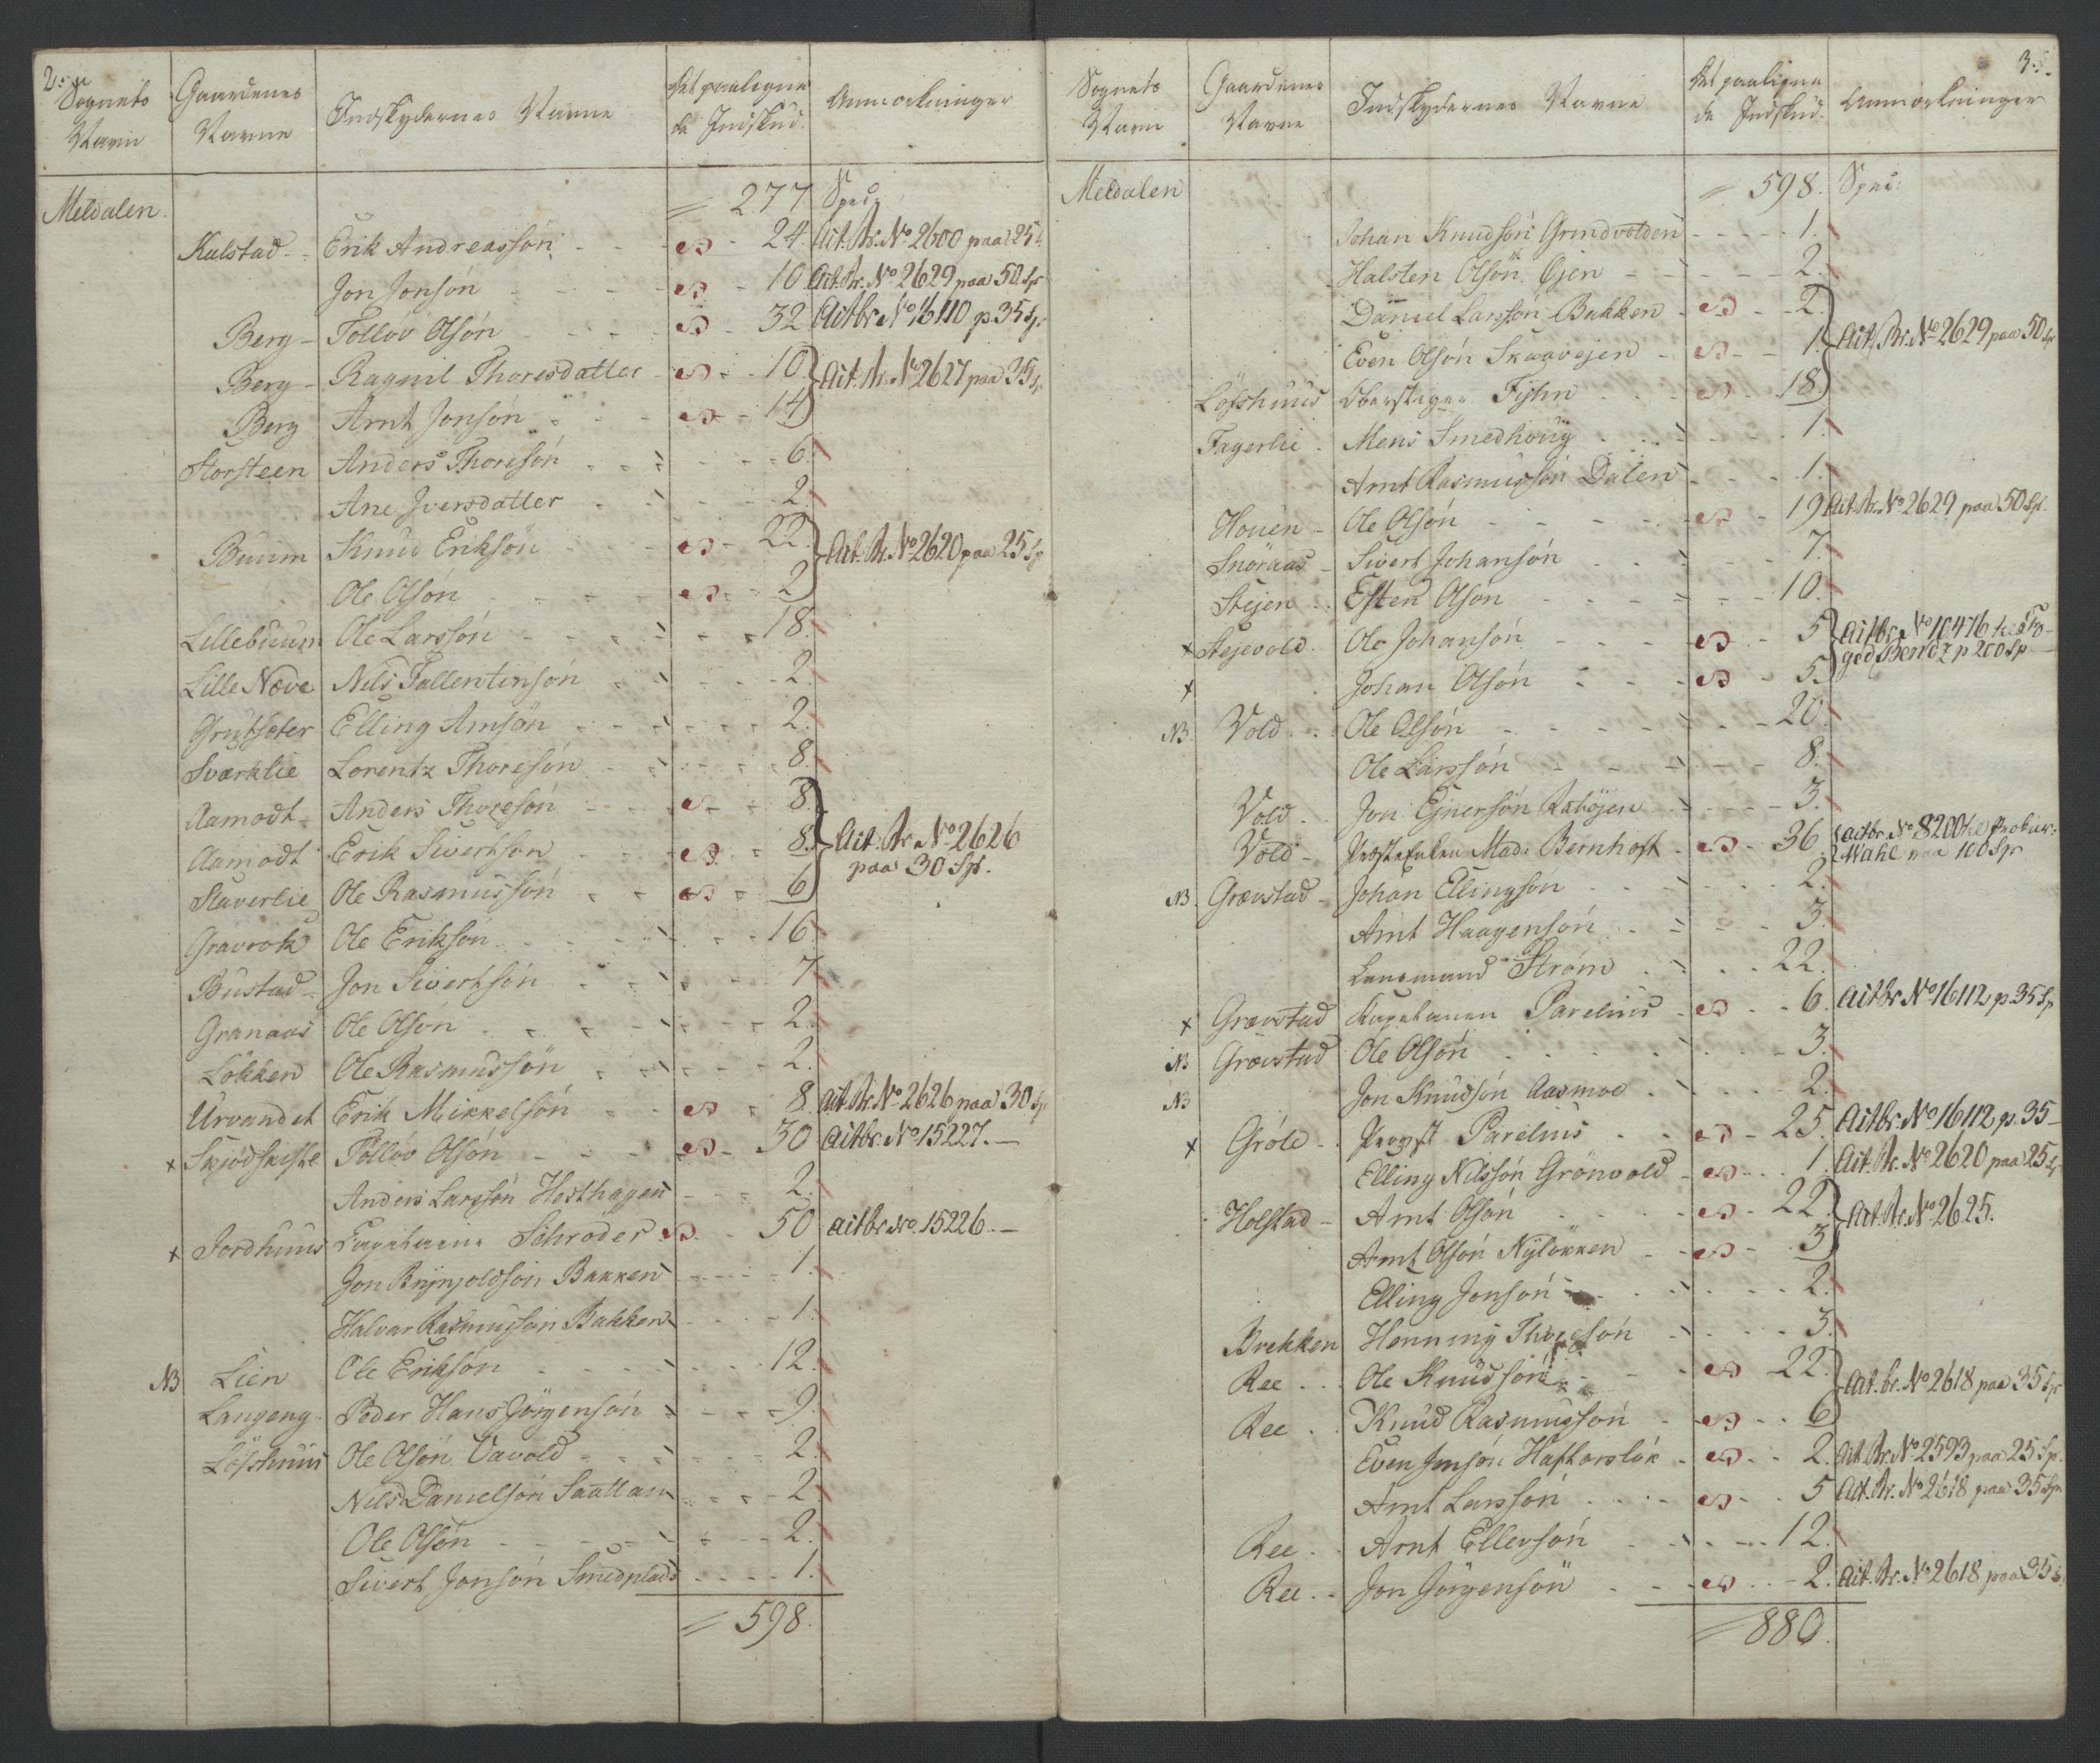 2.
Sognets Navn | Gaardenes Navne | Indskydernes Navne | Det paalignede Indskud. | Anmærkninger
Meldalen. = 277 Spec:
Kalstad - Erik Andreassøn - 24. Act. Br. No 2600 paa 25
Jon Jonsøn - 10 Act. Br. No 2629 paa 50 Sp
Berg - Tolløv Olsøn - 32 Actbr No 16110 p. 35 Sp
Berg - Ragnil Thoresdatter - 10. Act. Br. No 2627 paa 35 Sp
Berg Arnt Jonsøn - 14
Storsteen Anders Thoresøn - 6.
Ane Iversdatter - 2.
Buum Knud Eriksøn - 22. Act. Br. No 2620 paa 25 Sp
Ole Olsøn - 2
Lillebuum Ole Larssøn - 18.
Lille Næve Nils Fallentinsøn - 2.
Grutsæter Elling Arnsøn - 2.
Sværklie Lorentz Thoresøn - 8.
Aamodt - Anders Thoresøn - 8. Act. Br. No 2626
Aamodt Erik Sivertsøn - 8. paa 30 Sp.
Staverlie Ole Rasmussøn - 6
Gravrok Ole Eriksøn - 16
Bustad - Jon Sivertsøn - 7
Granaas Ole Olsøn - 2.
Løkken Ole Rasmussøn - 2.
Urvandet Erik Mikkelsøn - 8. Act. Br. No 2626 paa 30 Sp
x Skjødskift Tolløv Olsøn - 30 Actbr. No 15227. -
Anders Larssøn Hesthagen - 2.
x Jordhuus Capitaine Schrøder - 50 Actbr No. 15226. -
Jon Brynjoldsøn Bakken - 1.
Halvar Rasmussøn Bakken - 1.
NB Lien Ole Eriksøn - 12.
Langeng. Peder Hans Jørgensøn - 9.
Løfshuus Ole Olsøn Vavold - 2.
Nils Danielsøn Saattan - 2
Ole Olsøn - 2.
Sivert Jonsøn Smedplads - 1.
= 598.
3.
Sognets Navn | Gaardenes Navne | Indskydernes Navne | Det paalignede Indskud. | Anmærkninger
Meldalen = 598. Spec:
Johan Knudsøn Grindvolden - 1.
Halsten Olsøn Øien - 2.
Daniel Larssøn Bakken - 2
Even Olsøn Skaavejen - 1. Act. Br. No 2629 paa 50 Sp
Løfshuus Oberstiger Fijhn - 18
Fagerlie. Mens Smedhoug - 1.
Arnt Rasmussøn Dalen - 1.
Houen - Ole Olsøn - 19 Act. Br. No 2629 paa 50 Sp.
Snøraas - Sivert Johansøn - 7.
Stejen Esten Olsøn - 10.
x Stejevold. Ole Johansøn - 5 Actbr No 10476 hos Fo-
x Johan Olsøn - 5. ged Bendz p 200 Sp
NB. Vold. Ole Olsøn - 20.
Ole Larssøn - 8.
Vold. Jon Ejnersøn Ratøjen - 3.
Vold - Præsteenken Mad: Bernhoft - 36 Actbr No 8200 hos Prokur: Wahl paa 100 Sp
NB. Grævstad - Johan Ellingsøn - 2.
Arnt Haagensøn - 3.
Lensmand Strøm - 22.
x Grævstad Kapitainen Parelius - 6. Actbr No 16112 p. 35 Sp
NB Grævstad Ole Olsøn - 3.
NB Jon Knudsøn Aasmoe - 2.
x Grøle - Provst Parelius - 25. Actbr. No 16112 p. 35 -
Elling Nilssøn Grønvold - 1. Act. Br. No 2620 paa 25 Sp
Holstad - Arnt Olsøn - 22. Act. Br. No 2625.
Arnt Olsøn Nyløkken - 3
Elling Jonsøn - 2.
Brekken Henning Thoresøn - 3.
Ree. Ole Knudsøn - 22. Act. br. No 2618 paa 35 Sp
Ree. Knud Rasmussøn - 6
Even Jensøn Haftorsløk - 2. Act. Br. No 2593 paa 25 Sp.
Arnt Larssøn - 5 Act. Br. No 2618 paa 35 Sp
Ree. Arnt Ellevsøn - 12.
Ree. Jon Jørgensøn - 2. Act. Br. No 2618 paa 35 S.
= 880.